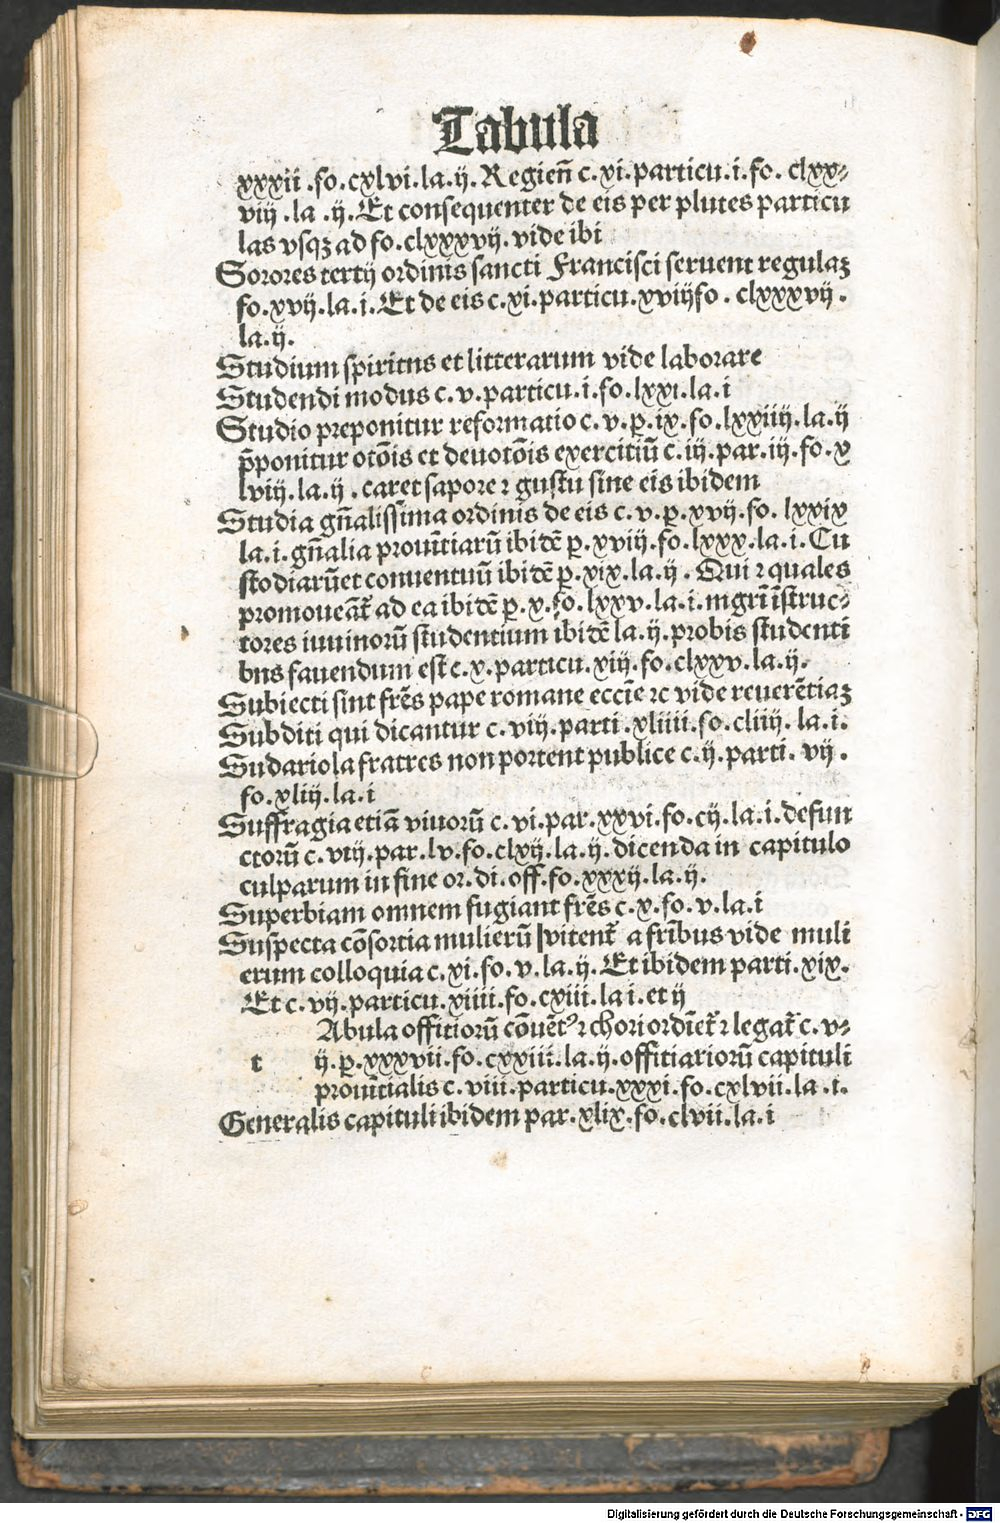 Tabula
xxxii .fo.cxlvi.la.ij.Regieñ c.xi.particu.i.fo. clxx⸗
viij .la .ij.Et consequenter de eis per plutes particu
las vsqꝫ ad fo.clxxxvij.vide ibi
Sorores tertij ordinis sancti Francisci seruent regulaꝫ
fo.xvij.la.i.Et de eis c.xi.particu.xviijfo . clxxxvij .
la.ij.
Studium spiritus et litterarum vide laborare
Studendi modus c.v.particu.i.fo.lxxi.la.i
Studio preponitur reformatio c.v.p̲.ix.fo.lxxiiij.la.ij
p̄ponitur otōis et deuotōis exercitiū c.iij.par.iij.fo.x
lviij.la.ij . caret sapore ⁊ gustu sine eis ibidem
Studia gñalissima ordinis de eis c.v.p̲.xvij.fo. lxxix
la.i.gñalia prouītiarū ibidē p̲.xviij.fo.lxxx.la.i.Cu
stodiarūet conuentuū ibidē p̲.xix.la.ij . Qui ⁊ quales
promoueāt̄ ad ea ibidē p̲.x.fo.lxxv.la.i.mgrī īstruc⸗
tores iuuinorū studentium ibidē la.ij.probis studenti
bus fauendum est c.x.particu.xiij.fo.clxxv.la.ij.
Subiecti sint frēs pape romane eccīe ⁊c vide reuerētiaꝫ
Subditi qui dicantur c.viij.parti.xliiii.fo.cliiij. la.i.
Sudariola fratres non portent publice c.ij.parti. vij .
fo.xliij.la.i
Suffragia etiā viuorū c.vi.par.xxvi.fo.cij.la.i.defun
ctorū c.vij.par.lv.fo.clxij.la.ij.dicenda in capitulo
culparum in fine or.di.off.fo.xxxij.la.ij.
Superbiam omnem fugiant frēs c.x.fo.v.la.i
Suspecta cōsortia mulierū vitent̄ a frībus vide muli
erum colloquia c.xi.fo.v.la.ij.Et ibidem parti.xix.
Et c.vij.particu.xiiii.fo.cxiii.la i.et ij
Abula offitiorū cōuēt⁹ ⁊ chori ordīet̄ ⁊ legat̄ c.v⸗
t ij.p̲.xxxvii.fo.cxxiii.la.ij.offitiariorū capituli
prouītialis c.viii.particu.xxxi.fo.cxlvii.la .i.
Generalis capituli ibidem par.xlix.fo.clvii.la.i
Digitalisierung gefördert durch die Deutsche Forschungsgemeinschaft - DFG